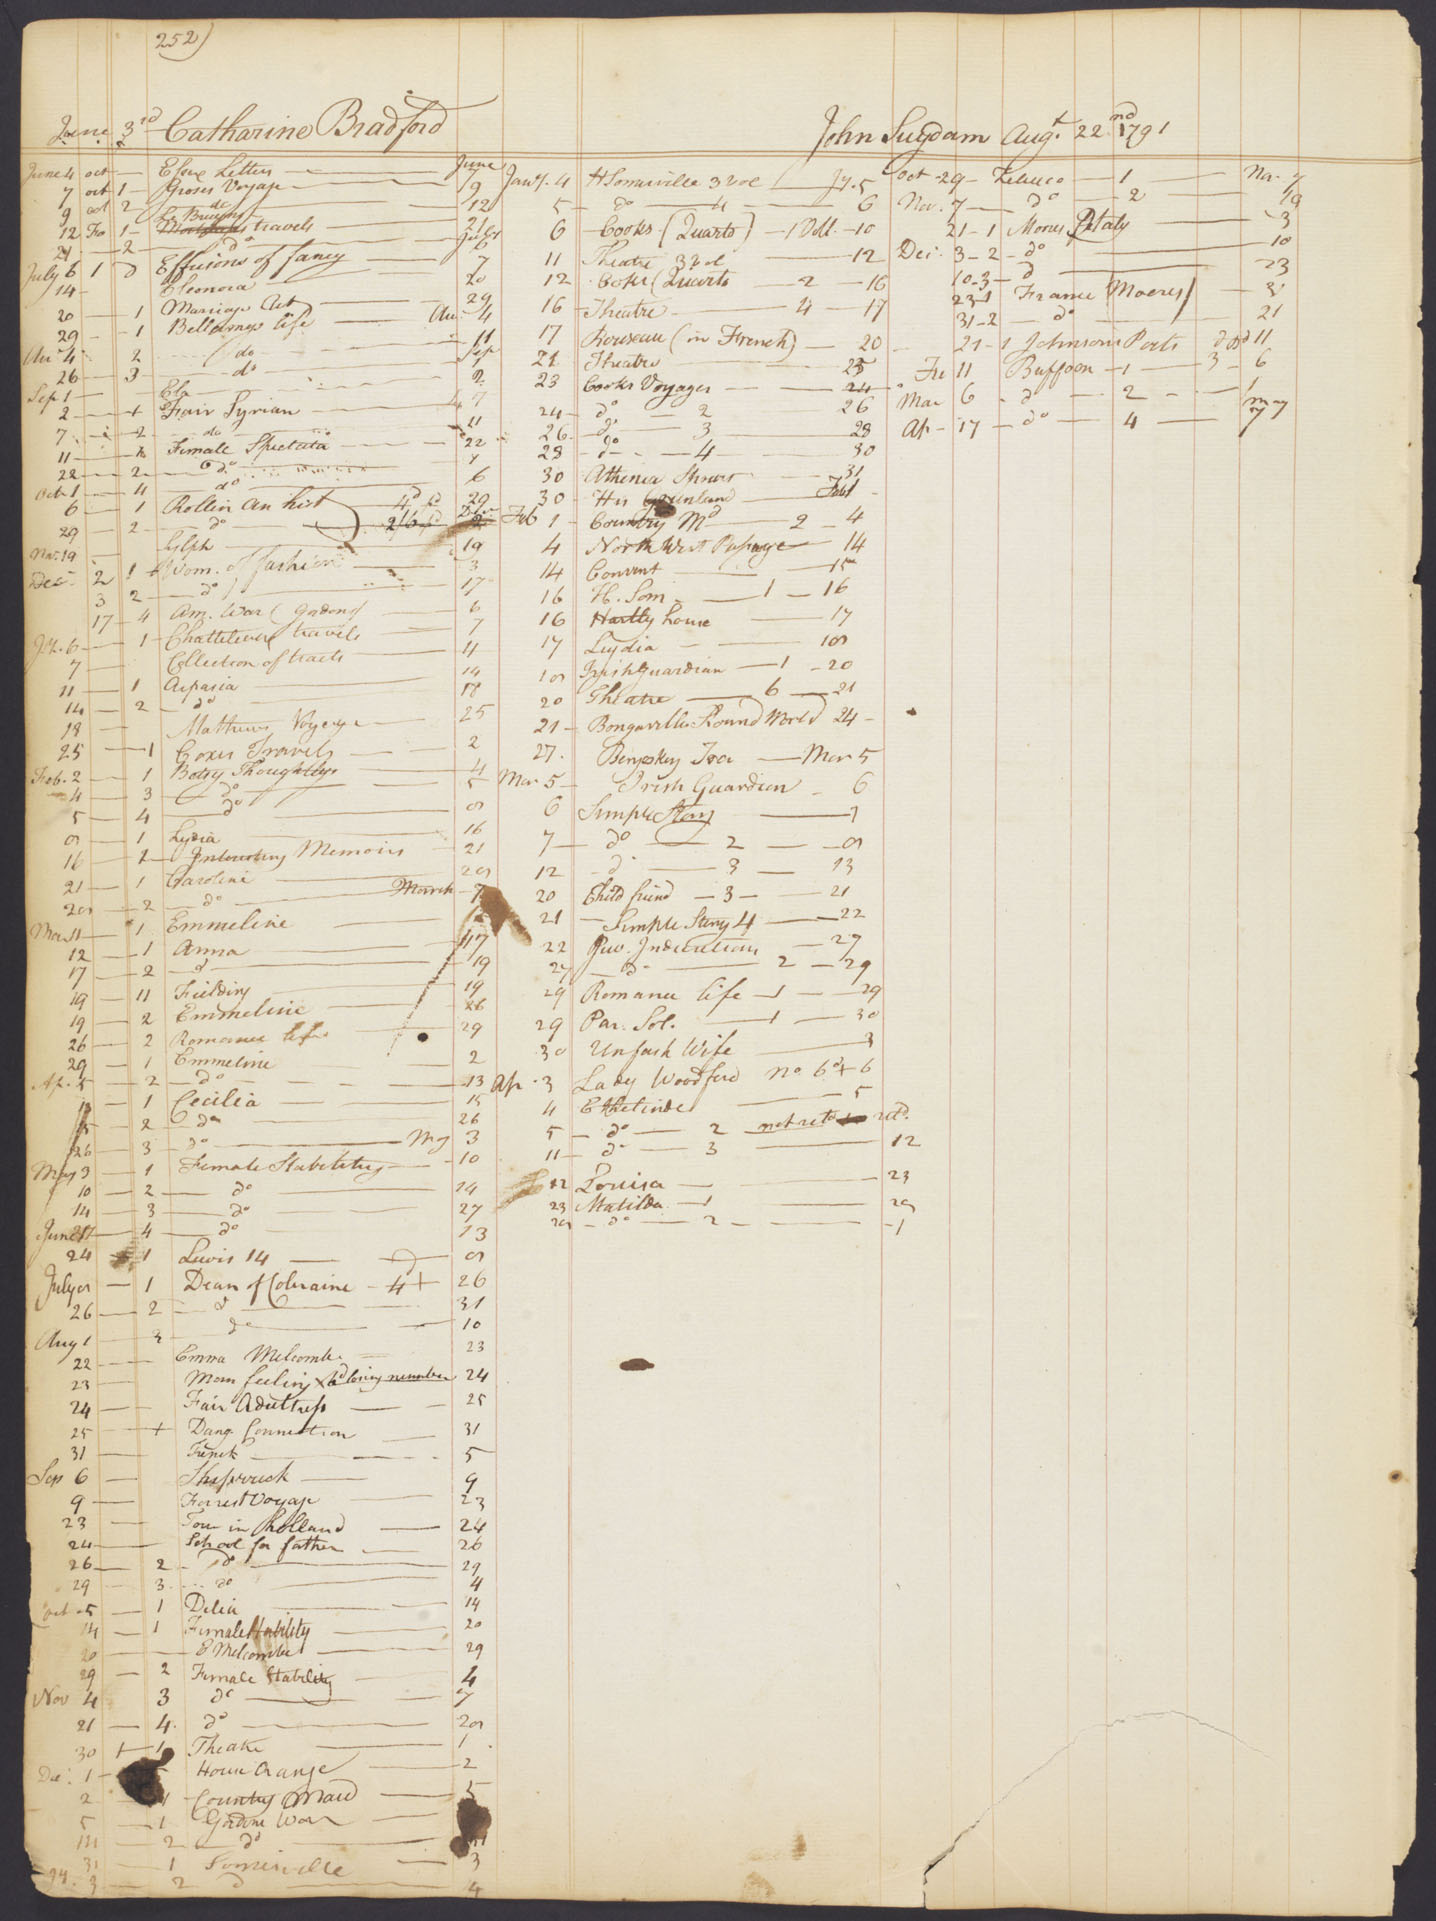 252)
June 3rd Catharine Bradford
June 4 oct — Letters — June 7
7 oct 1 — Groses Voyage — 9
9 oct 2 — do — 12
12 Fo 1 — Le Bruyns travels — 21
21 — 2 — do — July 6
July 6 1 Effusions of fancy — 7
14 — Eleonora — 20
20 — 1 Marriage Act — 29
29 — 1 Bellamys life — Au. 4
Au 4 2 do — 11
26 — 3 — do — Sep 1
Sep 1 — Ela — 2
2 — + Fair Syrian — 7
7 — 2 — do — 11
11 — Female Spectata — 22
22 — 2 — do
Oct 1 — 4 do — 6
6 — 1 Rollin an hist — 29
29 — 2 — do
Nov. 19 — Sylph — 19
Dec. 2 1 Wom. of fashion — 3
3 2 — do — 17
17 — 4 Am. War (Gordons) — 6
6 — 1 Chattelleux travels — 7
7 Collection of tracts — 11
11 — 1 Aspasia — 14
14 — 2 — do — 18
18 — Mathews Voyage — 25
25 — 1 Coxes Travels — 2
Feb. 2 — 1 Betsy Thoughtless — 4
4 — 3 — do — 5
5 — 4 — do — 8
8 — 1 Lydia — 16
16 — Interesting Memoirs — 21
21 — 1 Caroline — 28
28 — 2 — do — March
Mar 11 — 1 Emmeline
12 — 1 Anna — 17
17 — 2 — do — 19
19 — 11 Fielding — 19
19 — 2 Emmeline — 26
26 — 2 Romance life — 29
29 — 1 Emmeline — 2
Ap. 5 — 2 — do — 13
1 Cecilia — 15
15 — 2 — do — 26
26 — 3 — do — May 3
May 3 — 1 Female Stability — 10
10 — 2 — do — 14
14 — 3 — do — 27
June 17 — 4 — do — 13
24 — 1 Lewis 14 — 8
July 8 — 1 Dean of Colraine — 4 + 26
26 — 2 — do — 31
Aug 1 — 3 do — 10
22 — Emma Melcombe — 23
23 — Man feeling — 24
24 — Fair Adultress — 25
25 — + Dang. Connection — 31
31 — Trenck — 5
Sep 6 — Shipwreck — 9
9 — Forrest Voyage — 23
23 — Tour in Holland — 24
24 — School for father — 26
26 — 2 — do — 29
29 — 3 — do — 4
Oct 5 — 1 Delia — 14
14 — 1 Female Stability — 20
20 — E Melcombe — 29
29 — 2 Female Stability — 4
Nov 4 3 do — 7
21 — 4. do — 28
30 + 1 Theatre — 1
Dec. 1 — Horrid Change — 2
2 — Country Maid — 5
5 — 1 Gordons War
2 — do
31 — 1 Somerville — 3
3 — 2 do — 4
Jany. 4 H Somerville 3 vol — Jy. 5
5 — do — 4 — 6
6 Cooks (Quarto) — 1 Vol. — 10
11 Theatre 3 vol — 12
12 Cooks (Quarto — 2 — 16
16 — Theatre — 4 — 17
17 Rouseau (in French) — 20
21 Theatre — 23
23 Cooks Voyages — 24
24 — do — 2 26
26 — do — 3 — 28
28 — do — 4 — 30
30 Athenia Stuart — 31
30 — His Greenland — Feb 1
Feb 1 — Country Md — 2 — 4
4 North West Passage — 14
14 Convent — 15
16 H. Som — 1 — 16
16 Hartly house — 17
17 Lydia — 18
18 Irish Guardian — 1 — 20
20 Theatre — 6 — 21
21 — Bongaville Round World 24 —
27. Benyosky — Mar 5
Mar 5 — Irish Guardian — 6
6 Simple Story — 7
7 — do — 2 — 8
12 — do — 3 — 13
20 Child friend — 3 — 21
21 — Simple Story 4 — 22
22 Juv. Indiscretions — 27
27 — do — 2 — 29
29 Romance life — 1 — 29
29 Par. Sol. — 1 — 30
30 Unfash Wife — 3
Ap. 3 Lady Woodford no 6 6
4 Ethelinde — 5
5 — do — 2 not retd retd.
11 — do — 3 — 12
12 Louisa — 23
23 Matilda — 1 — 28
28 — do — 2 — 1
John Suydam Augt. 22nd 1791
oct — 29 — Zeluco — 1 — Nov. 7
Nov. 7 — do — 2 — 19
21 — 1 Mores Italy — 3
Dec. 3 — 2 — do — 10
10 — 3 — do — 23
23 1 France (Moores) — 3
31 — 2 — do — 21
21 — 1 Johnsons Poets 11
Fe 11 Buffoon — 1 — 3 — 6
Mar 6 — do — 2 — 1
Ap — 17 — do — 4 — May 7